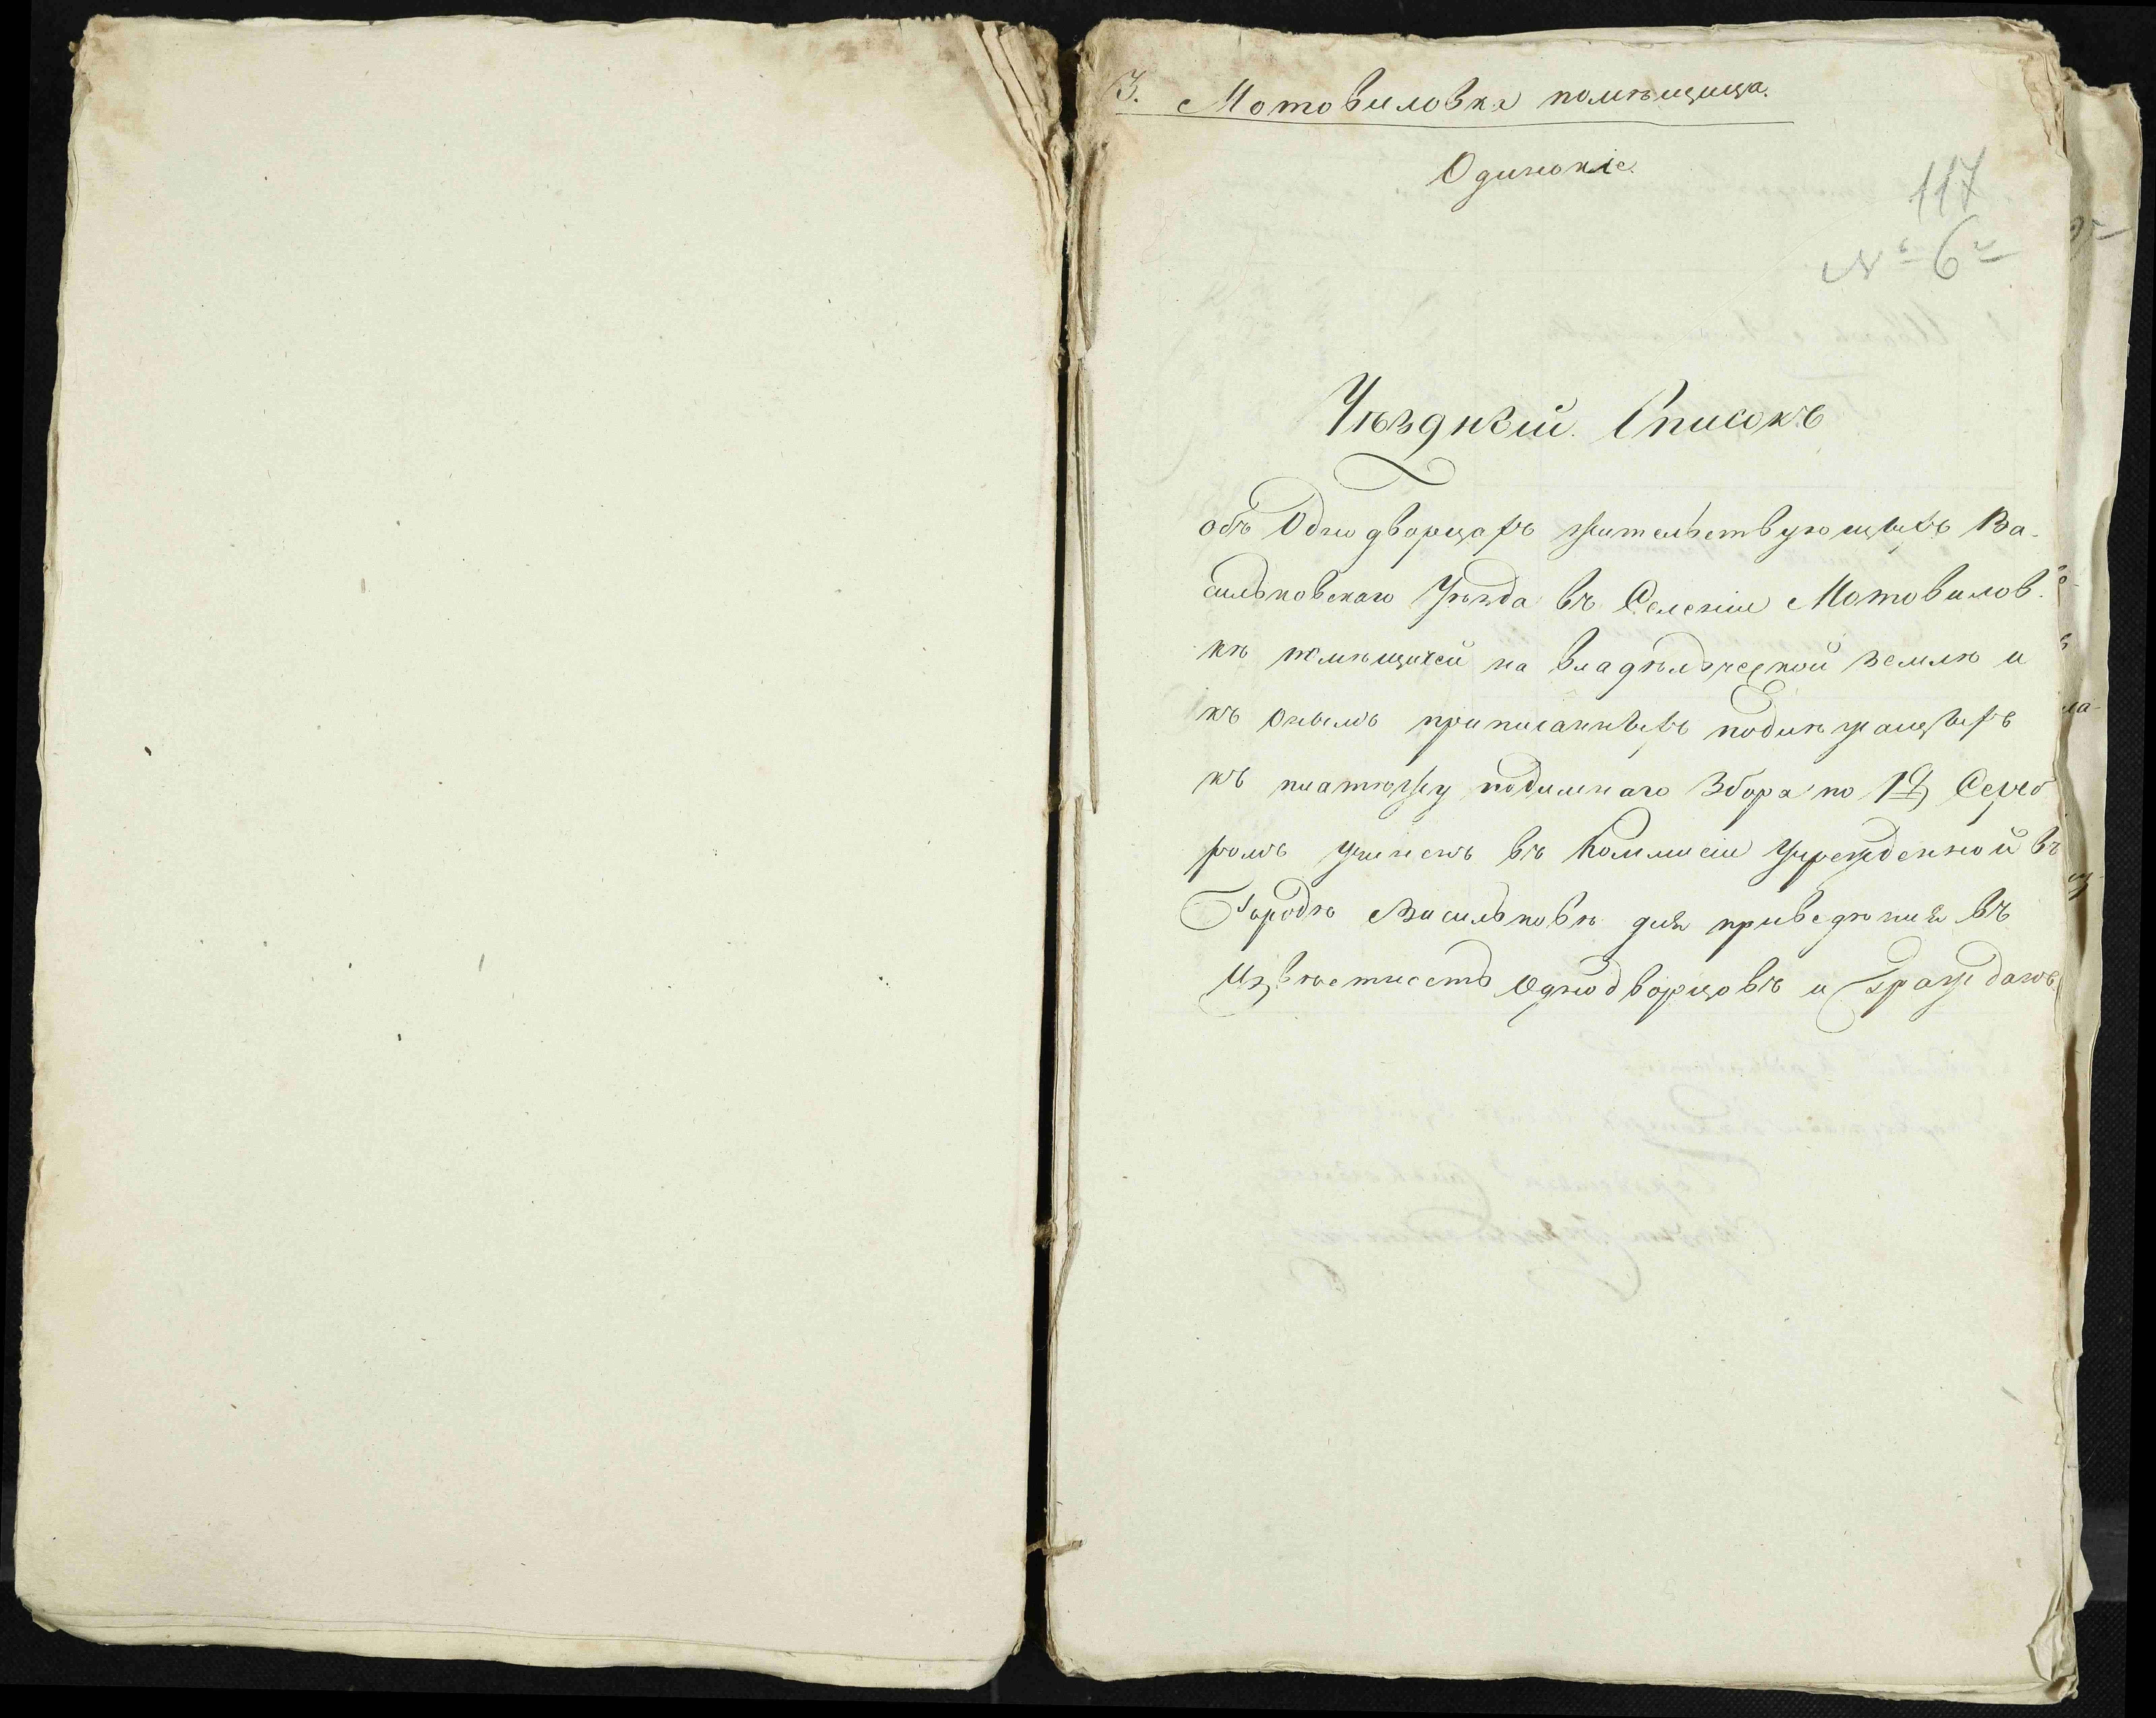 3. Мотовиловка помѣщица.
Одинокіе.
117
№ 6
Уѣздный Списокъ
объ Однодворцахъ жительствующихъ Ва-
сильковскаго Уѣзда въ Селеніи Мотовилов-
кѣ помѣщичей на владѣльческой землѣ и
къ онымъ приписанныхъ подлежащихъ
къ платежу подымнаго Збора по 1 Сереб
ромъ учиненъ въ Коммисіи Учрежденной въ
Городѣ Васильковѣ для приведенія въ
Извѣстность Однодворцовъ и Гражданъ